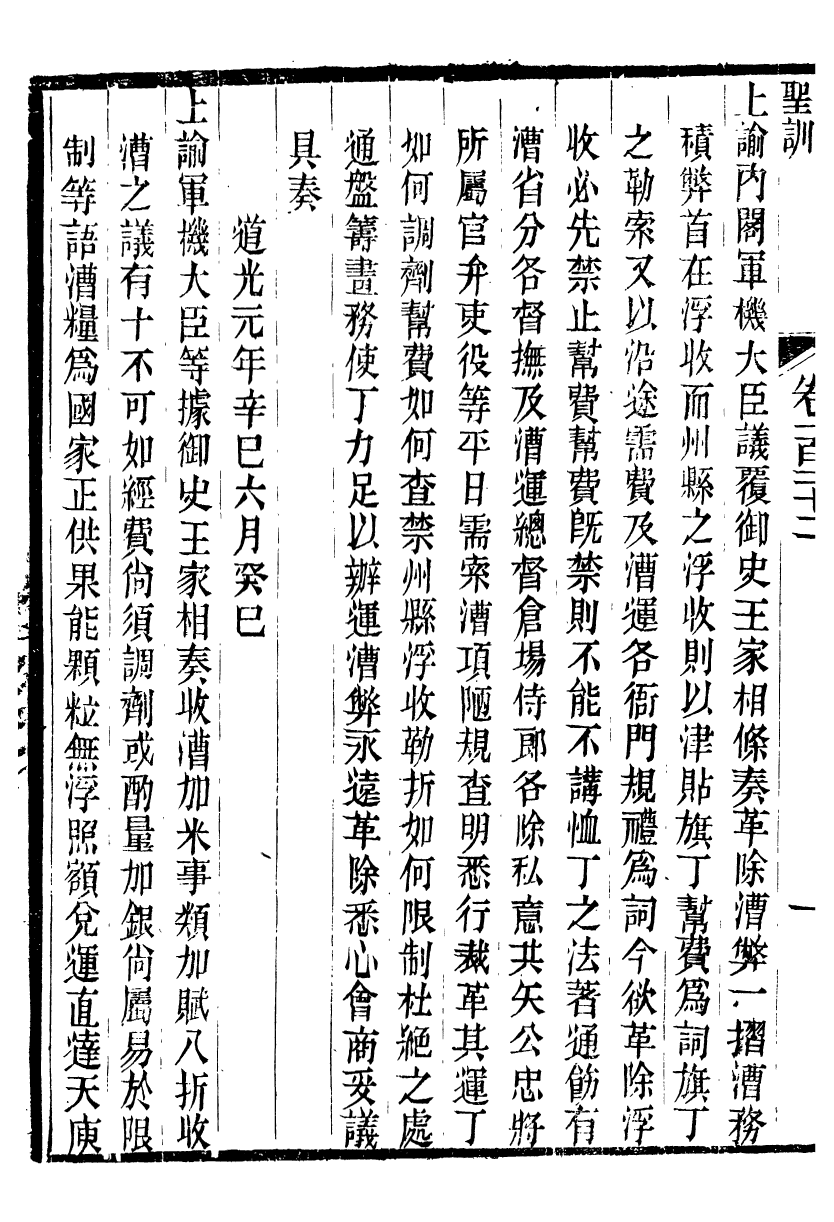 聖訓 卷一百三十二 一
上諭內閣軍機大臣議覆御史王家相條奏革除漕弊一摺漕務
積弊首在浮收而州縣之浮收則以津貼旗丁幫費爲詞旗丁
之勒索又以沿途需費及漕運各衙門規禮爲詞今欲革除浮
收必先禁止幫費幫費旣禁則不能不講恤丁之法著通飭有
漕省分各督撫及漕運總督倉場侍郎各除私意共矢公忠將
所屬官弁吏役等平日需索漕項陋規查明悉行裁革其運丁
如何調劑幫費如何查禁州縣浮收勒折如何限制杜絕之處
通盤籌畫務使丁力足以辦運漕弊永遠革除悉心會商妥議
具奏
道光元年辛巳六月癸巳
上諭軍機大臣等據御史王家相奏收漕加米事類加賦八折收
漕之議有十不可如經費尙須調劑或酌量加銀尙屬易於限
制等語漕糧爲國家正供果能顆粒無浮照額兌運直達天庾